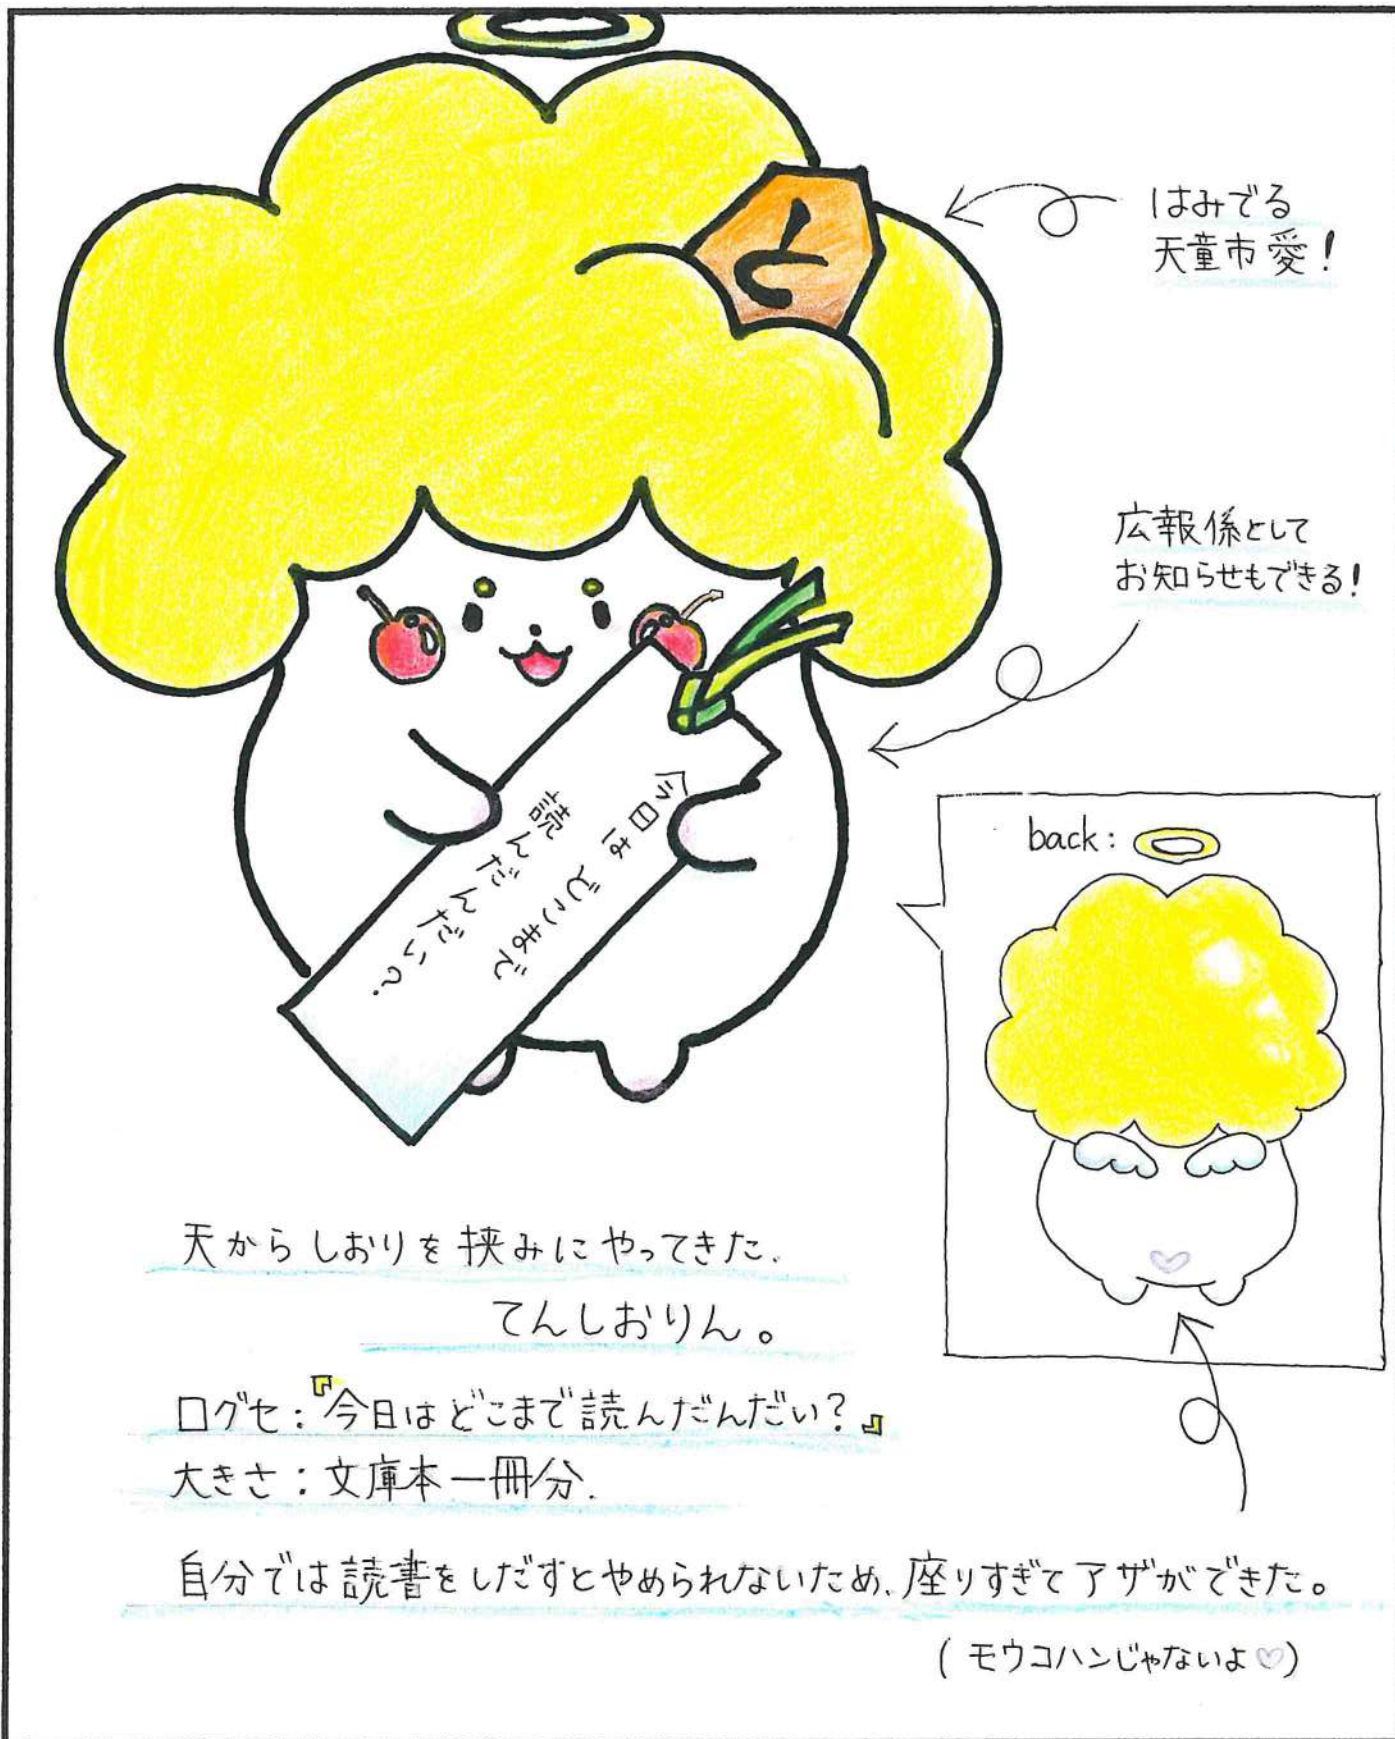 と
はみでる
天童市愛!
広報係として
お知らせもできる!
今日はどこまで
読んだんだい?
back:
天からしおりを挟みにやってきた.
てんしおりん。
口グセ:『今日はどこまで読んだんだい?』
大きさ:文庫本一冊分.
自分では読書をしだすとやめられないため、座りすぎてアザができた。
(モウコハンじゃないよ♡)